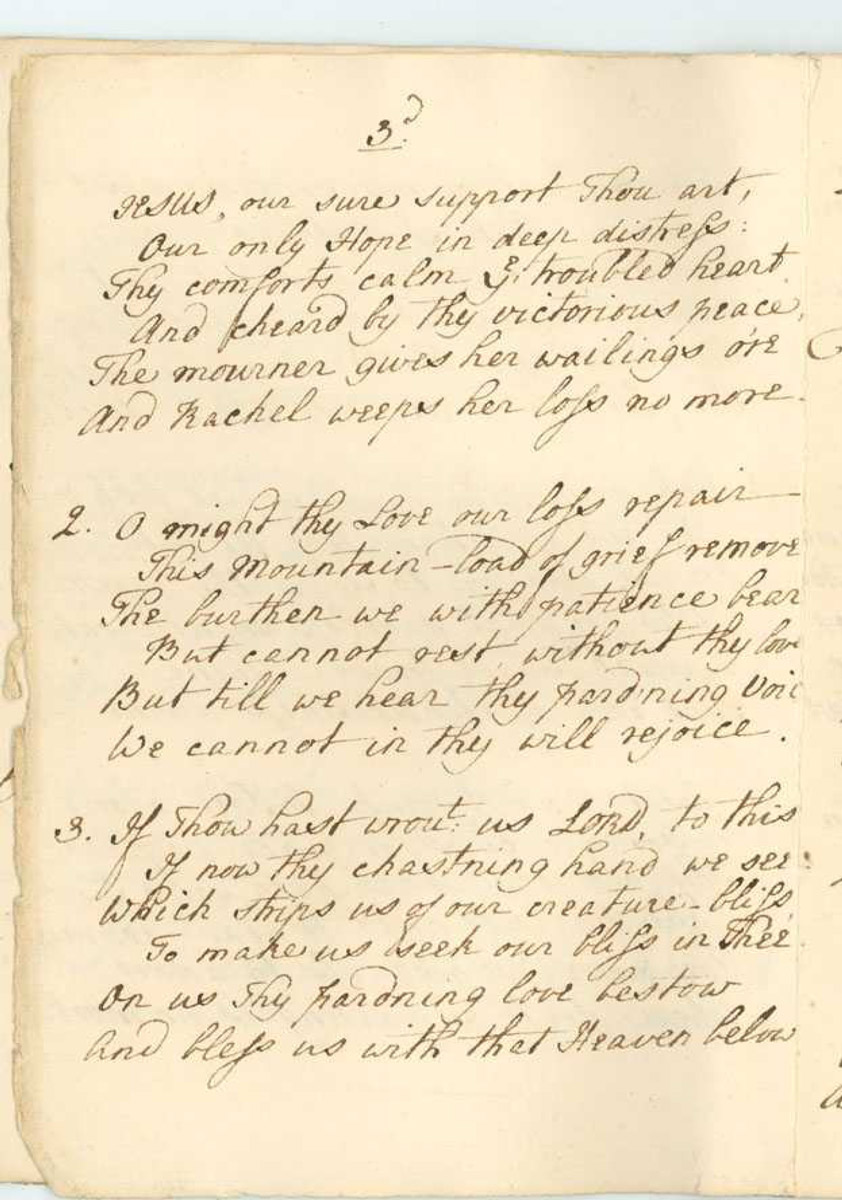 3.d
JESUS, our sure support Thou art,
Our only Hope in deep distreſs:
Thy comforts calm ye troubled heart
And cheard by thy victorious peace,
The mourner gives her wailings o're
And Rachel weeps her loſs no more.
2. O might thy Love our loſs repair
This Mountain-load of grief remove
The burthen we with patience bear
But cannot rest without thy love
But till we hear thy pard'ning Voic
We cannot in thy will rejoice.
3. If Thou hast wrout: us LORD, to this
If now thy chastning hand we see:
Which strips us of our creature-bliſs,
To make us seek our bliſs in Thee.
On us Thy pardning love bestow
And bleſs us with that Heaven below